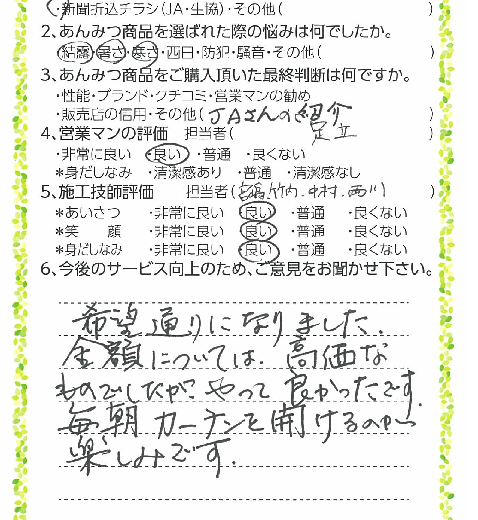 ・新聞折込チラシ(JA・生協)・その他( )
2、あんみつ商品を選ばれた際の悩みは何でしたか。
・結露・暑さ・寒さ・西日・防犯・騒音・その他( )
3、あんみつ商品をご購入頂いた最終判断は何ですか。
・性能・ブランド・クチコミ・営業マンの勧め
・販売店の信用・その他( JAさんの紹介 )
4、営業マンの評価 担当者( 足立 )
・非常に良い ・良い ・普通 ・良くない
*身だしなみ ・清潔感あり ・普通 ・清潔感なし
5、施工技師評価 担当者( 竹内、中村、西川 )
*あいさつ ・非常に良い ・良い ・普通 ・良くない
*笑 顔 ・非常に良い ・良い ・普通 ・良くない
*身だしなみ ・非常に良い ・良い ・普通 ・良くない
6、今後のサービス向上のため、ご意見をお聞かせ下さい。
希望通りになりました。
金額については、高価な
ものでしたが、やって良かったです。
毎朝カーテンを開けるのが
楽しみです。